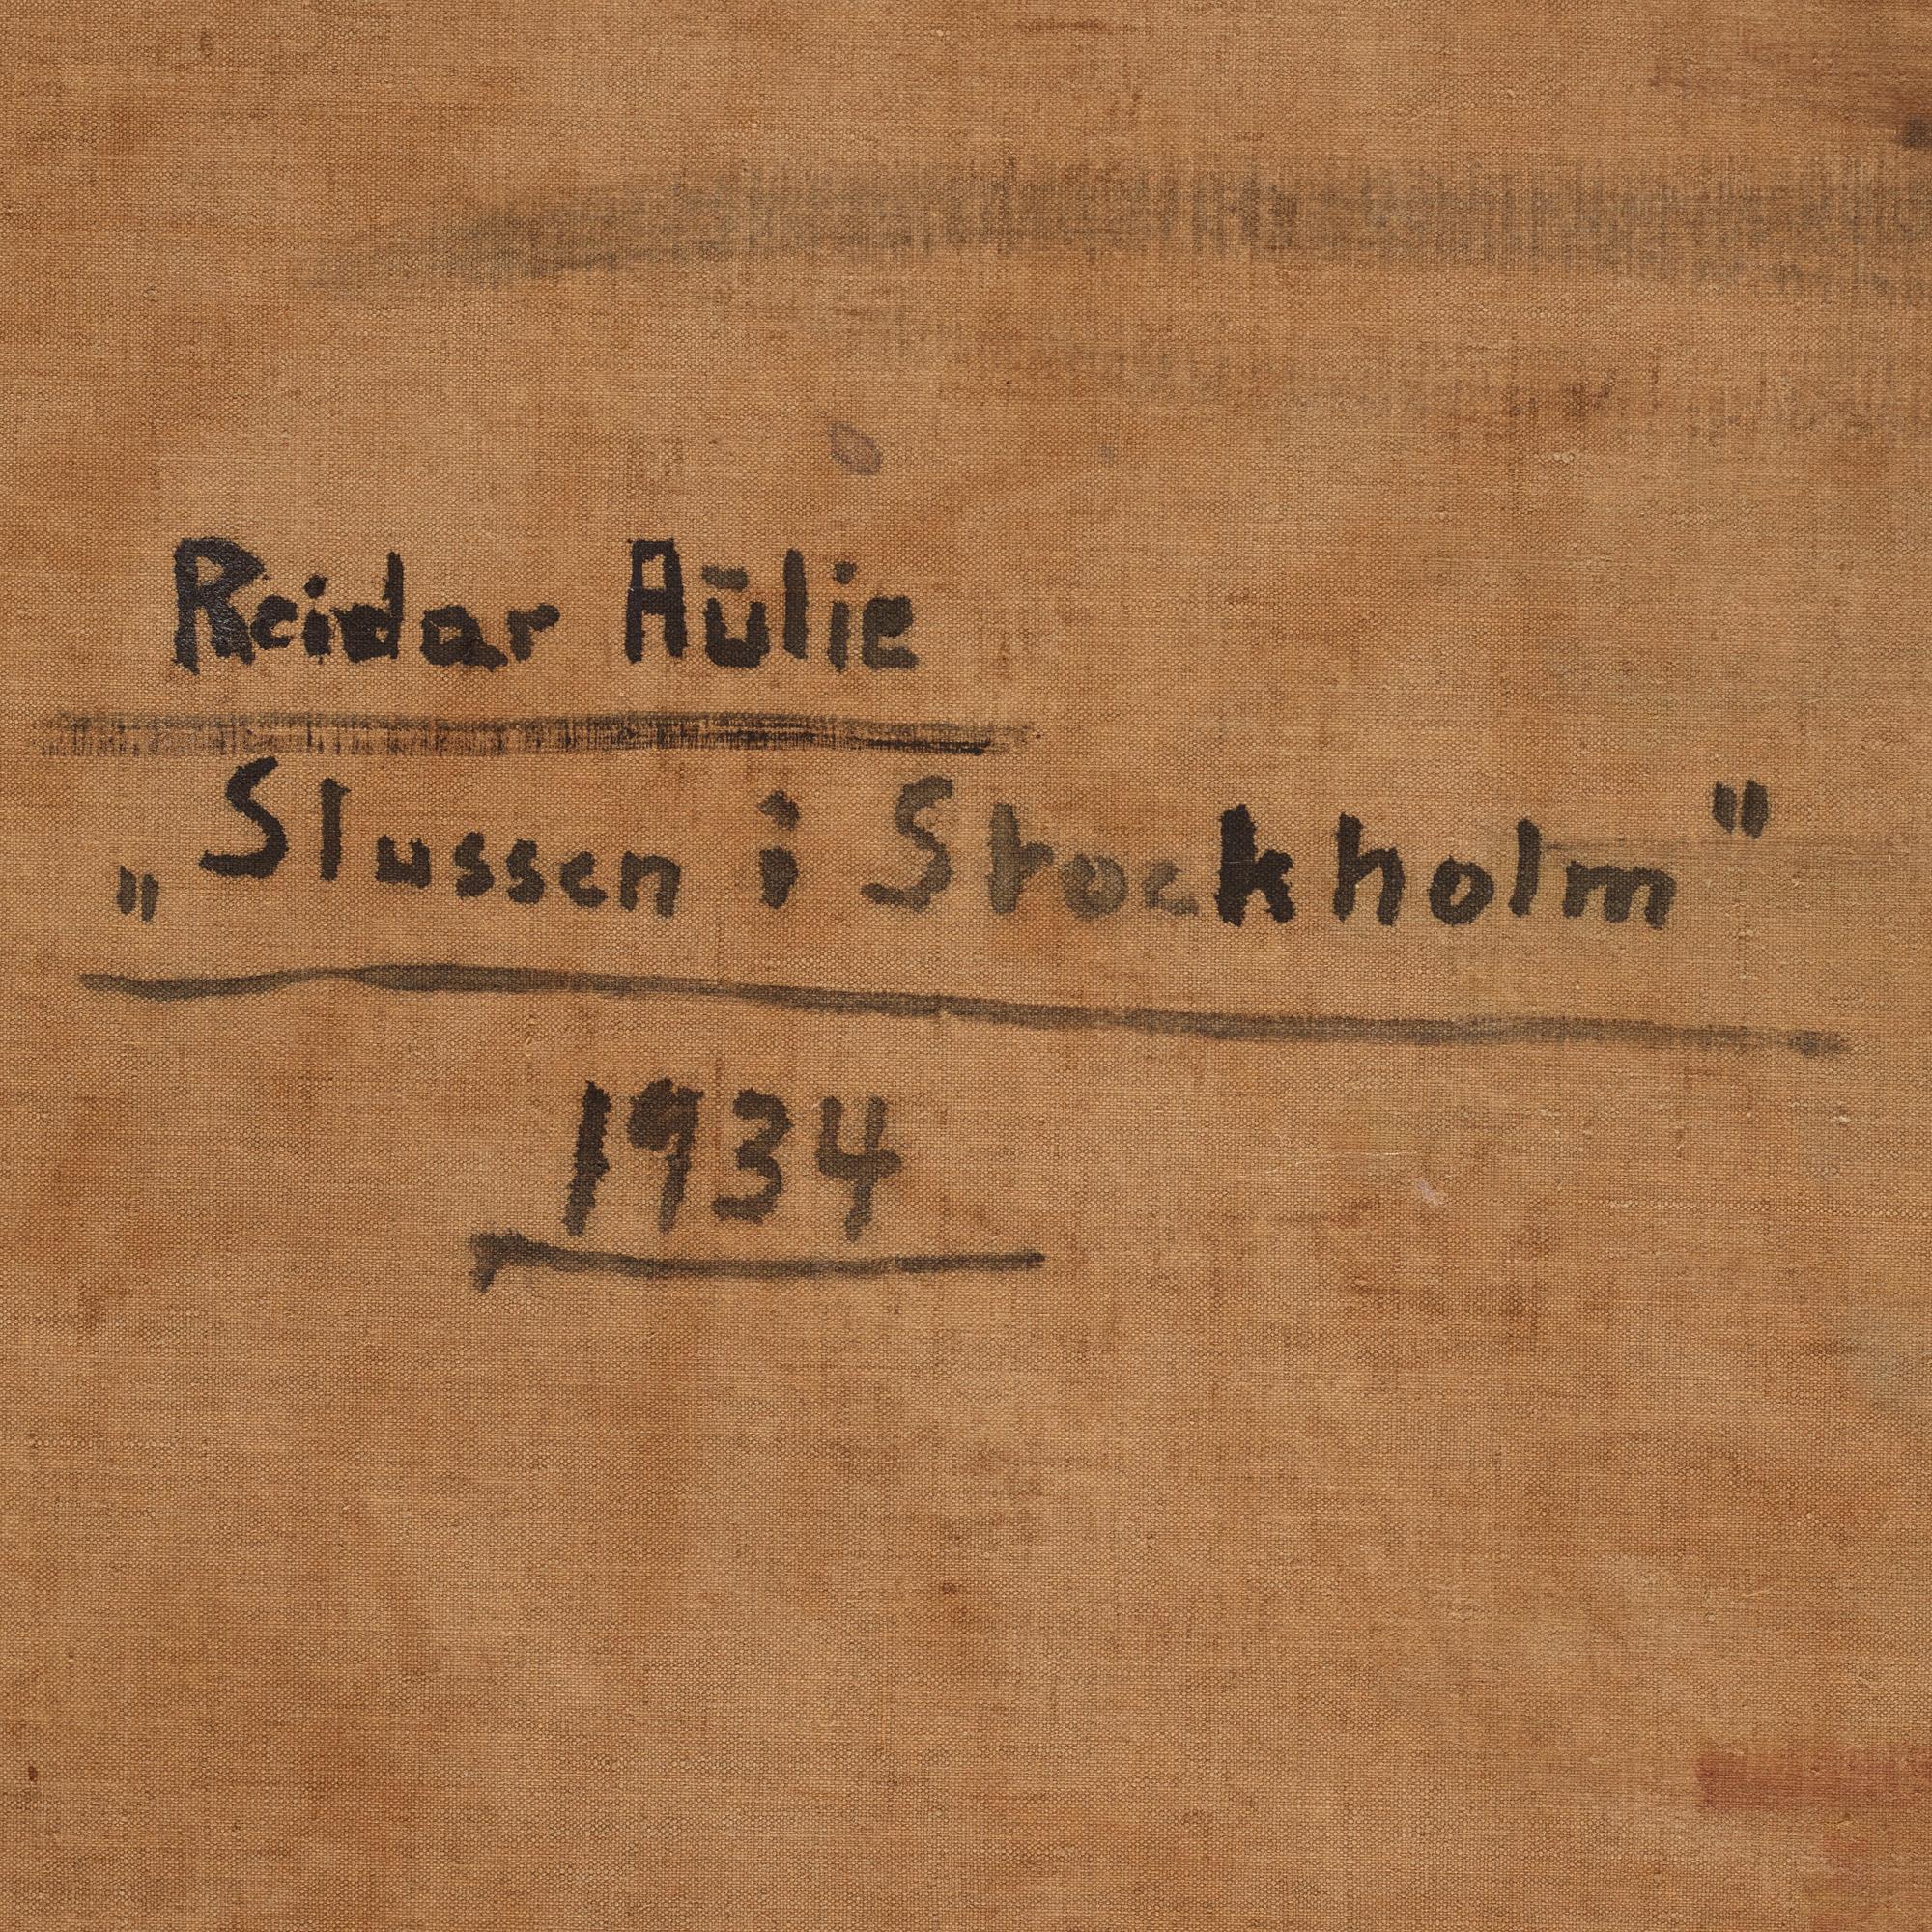 Reidar Aūlie
„Slussen i Stockholm"
1934